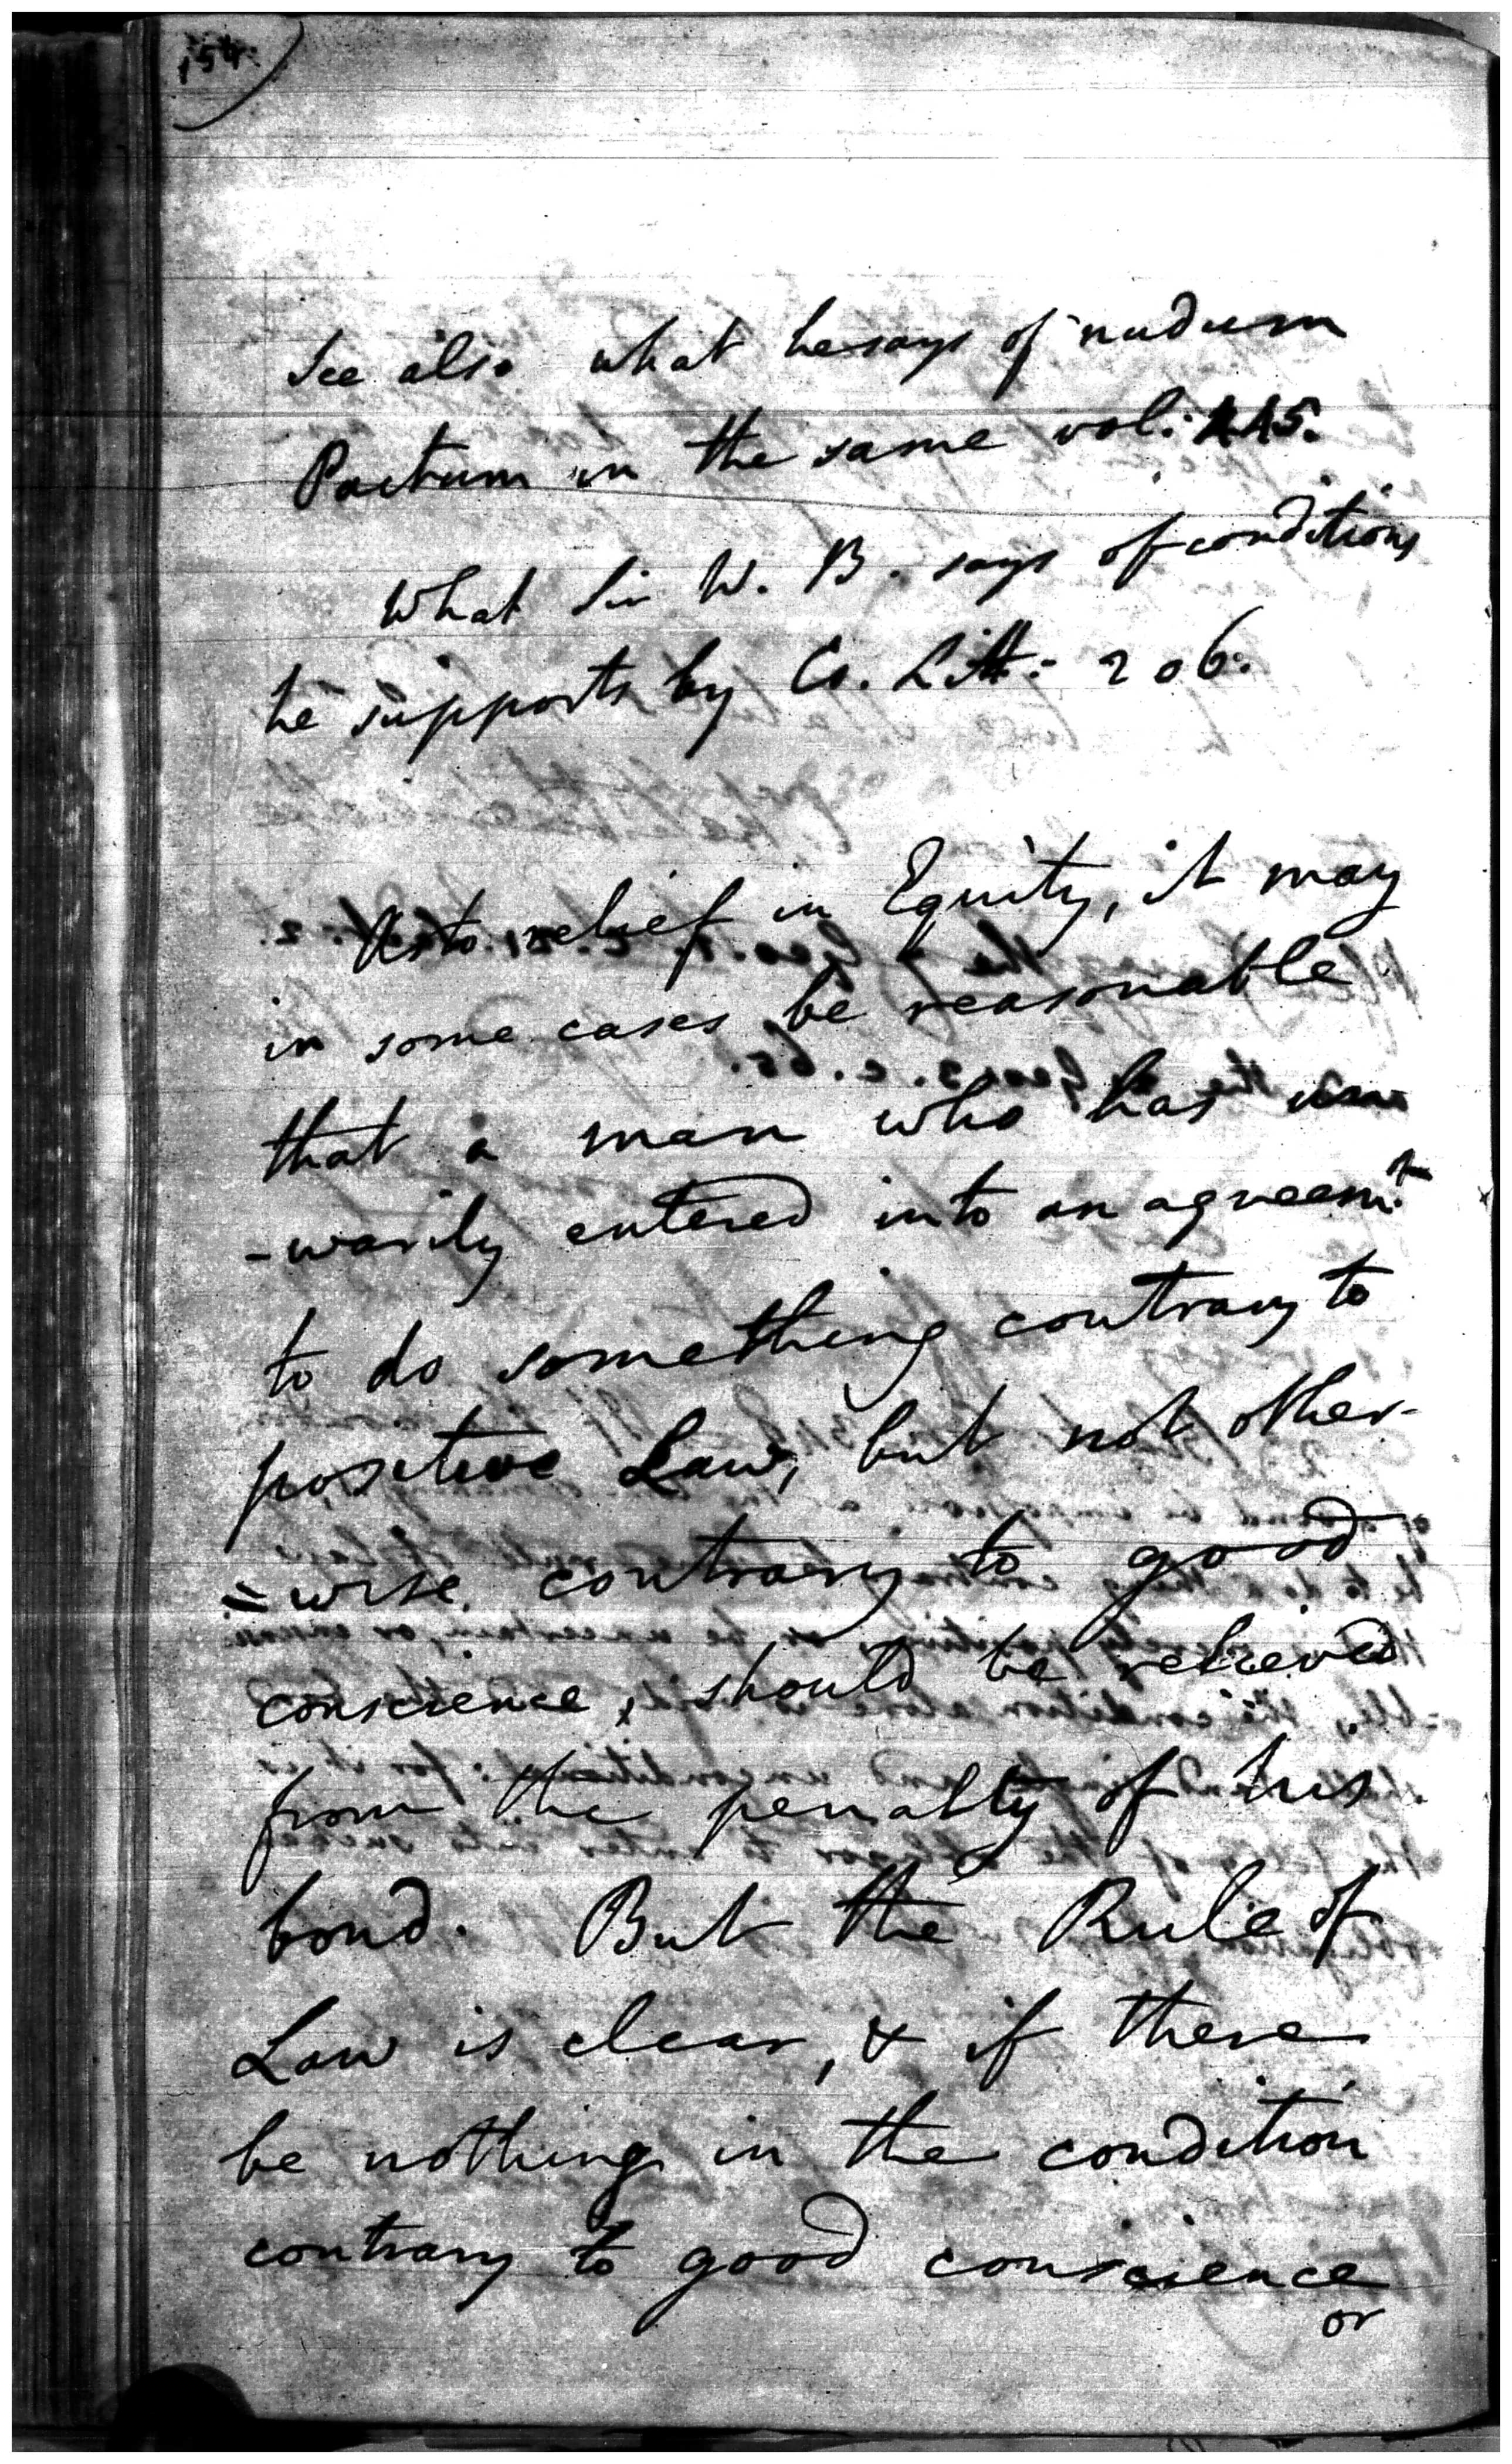 154.
See also what he says of nudum
Pactum in the same vol. 445.
What Sir W. B. says of conditions
he supports by Co. Litt: 206.
As to relief in Equity, it may
in some cases be reasonable
that a man who has un
-warily entered into an agreemt
to do something contrary to
positive Law, but not other-
=wise contrary to good
conscience, should be relieved
from the penalty of his
bond. But the Rule of
Law is clear, & if there
be nothing in the condition
contrary to good conscience
or